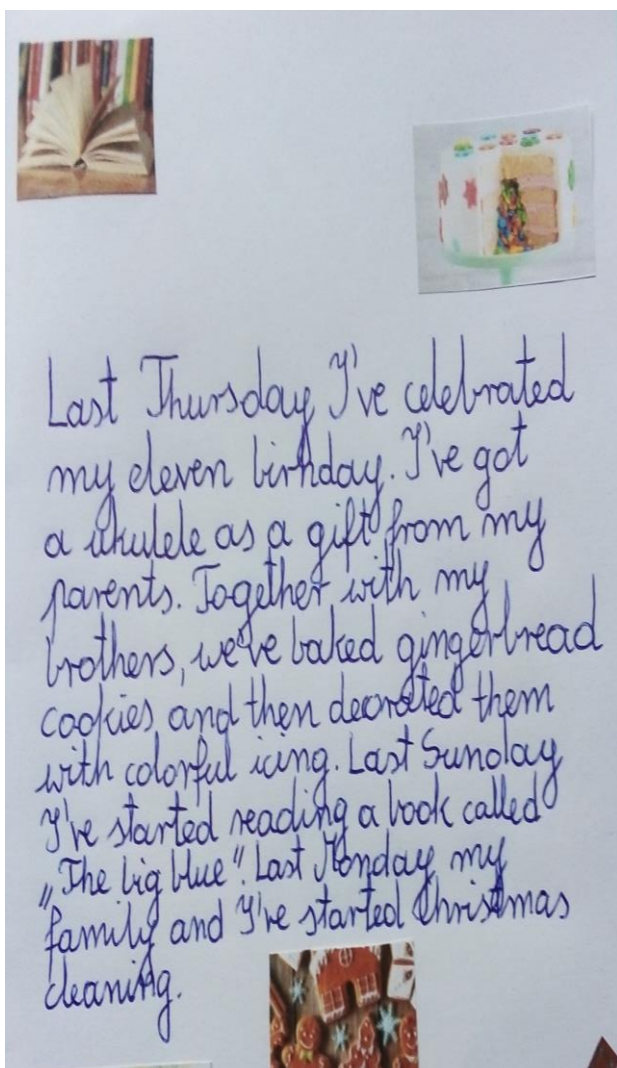 Last Thursday I've celebrated
my eleven birhday. I've got
a ukulele as a gift from my
parents. Together with my
brothers, we've baked gingerbread
cookies and then decorated them
with colorful icing. Last Sunday
I've started reading a book called
„The big blue". Last Monday my
family and I've started Christmas
cleaning.